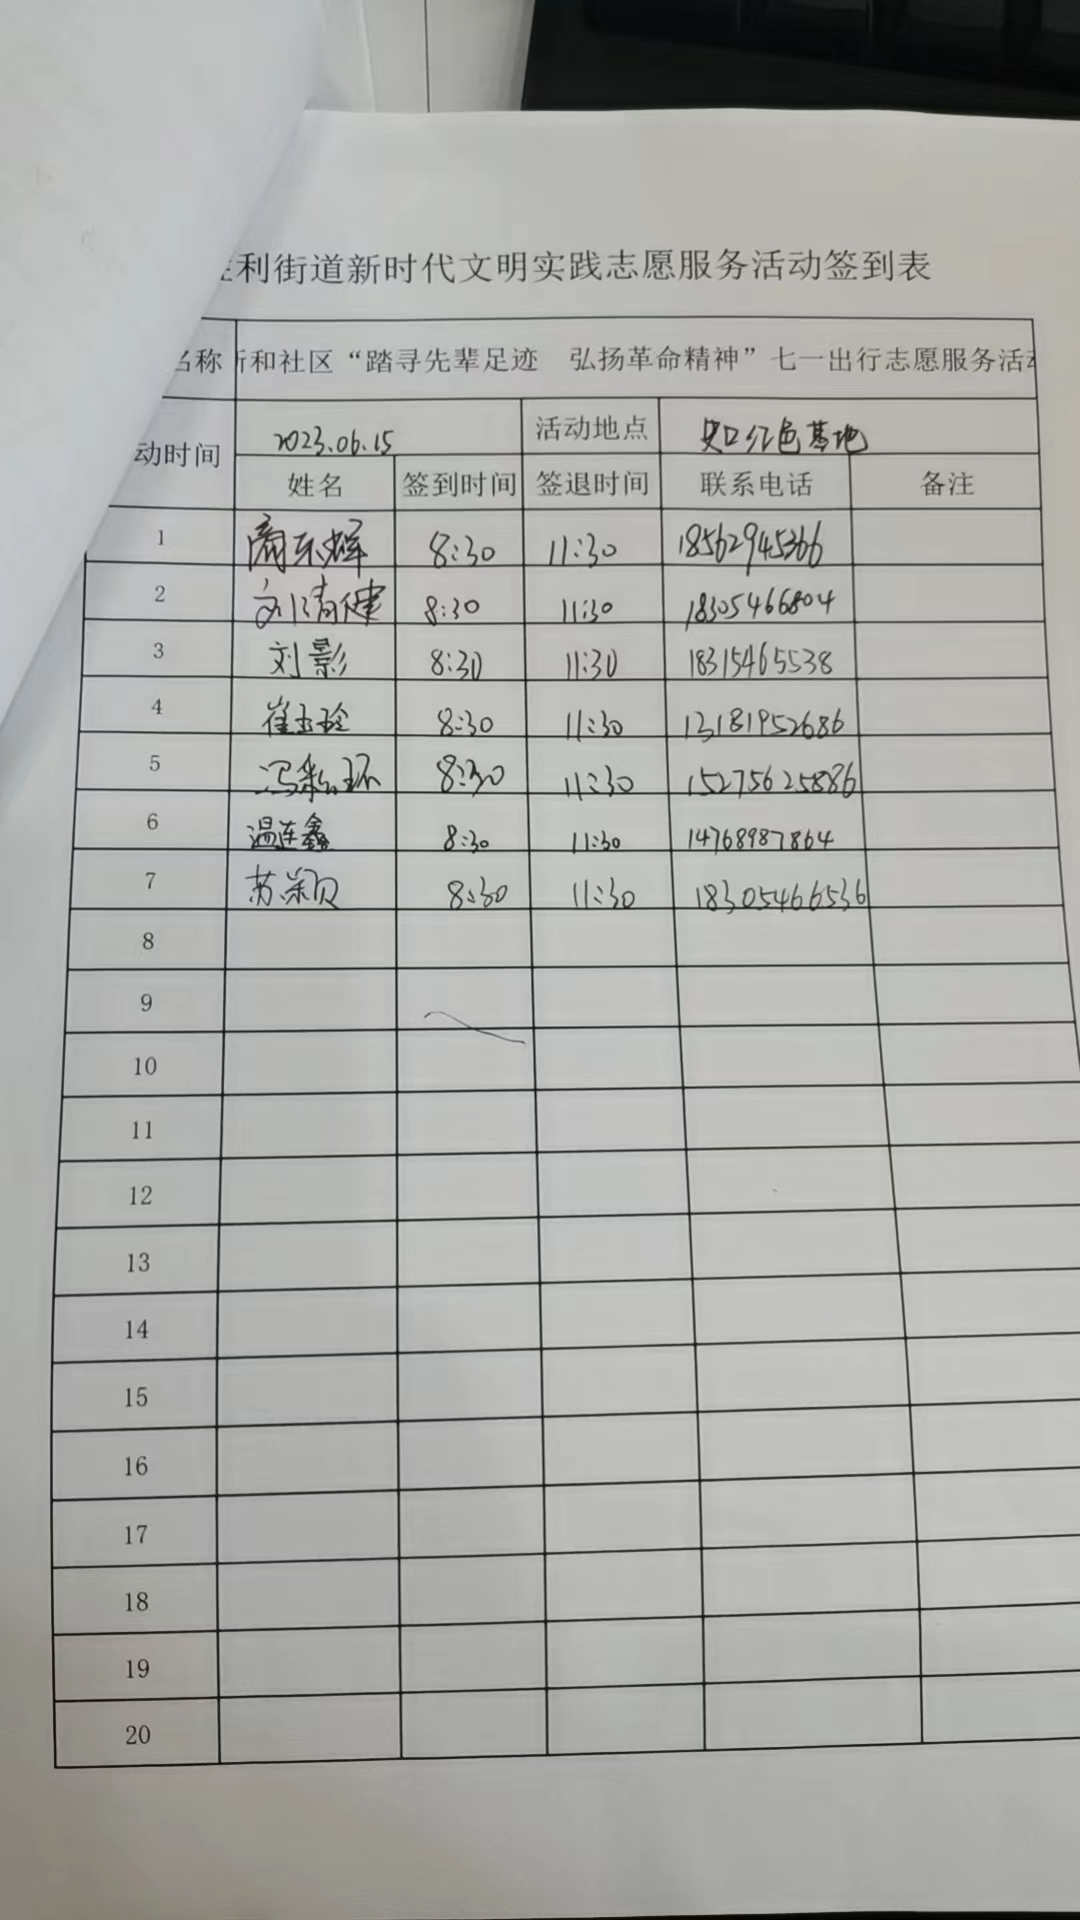 利街道新时代文明实践志愿服务活动签到表
名称 新和社区“踏寻先辈足迹 弘扬革命精神”七一出行志愿服务活动
动时间 2023.06.15 活动地点 史口红色基地
姓名 签到时间 签退时间 联系电话 备注
1 8:30 11:30 18562945366
2 刘清健 8:30 11:30 18305466804
3 刘影 8:30 11:30 18315465538
4 崔玉玲 8:30 11:30 13181952686
5 8:30 11:30 15275625886
6 温连鑫 8:30 11:30 14768987864
7 苏颖 8:30 11:30 18305466536
8
9
10
11
12
13
14
15
16
17
18
19
20